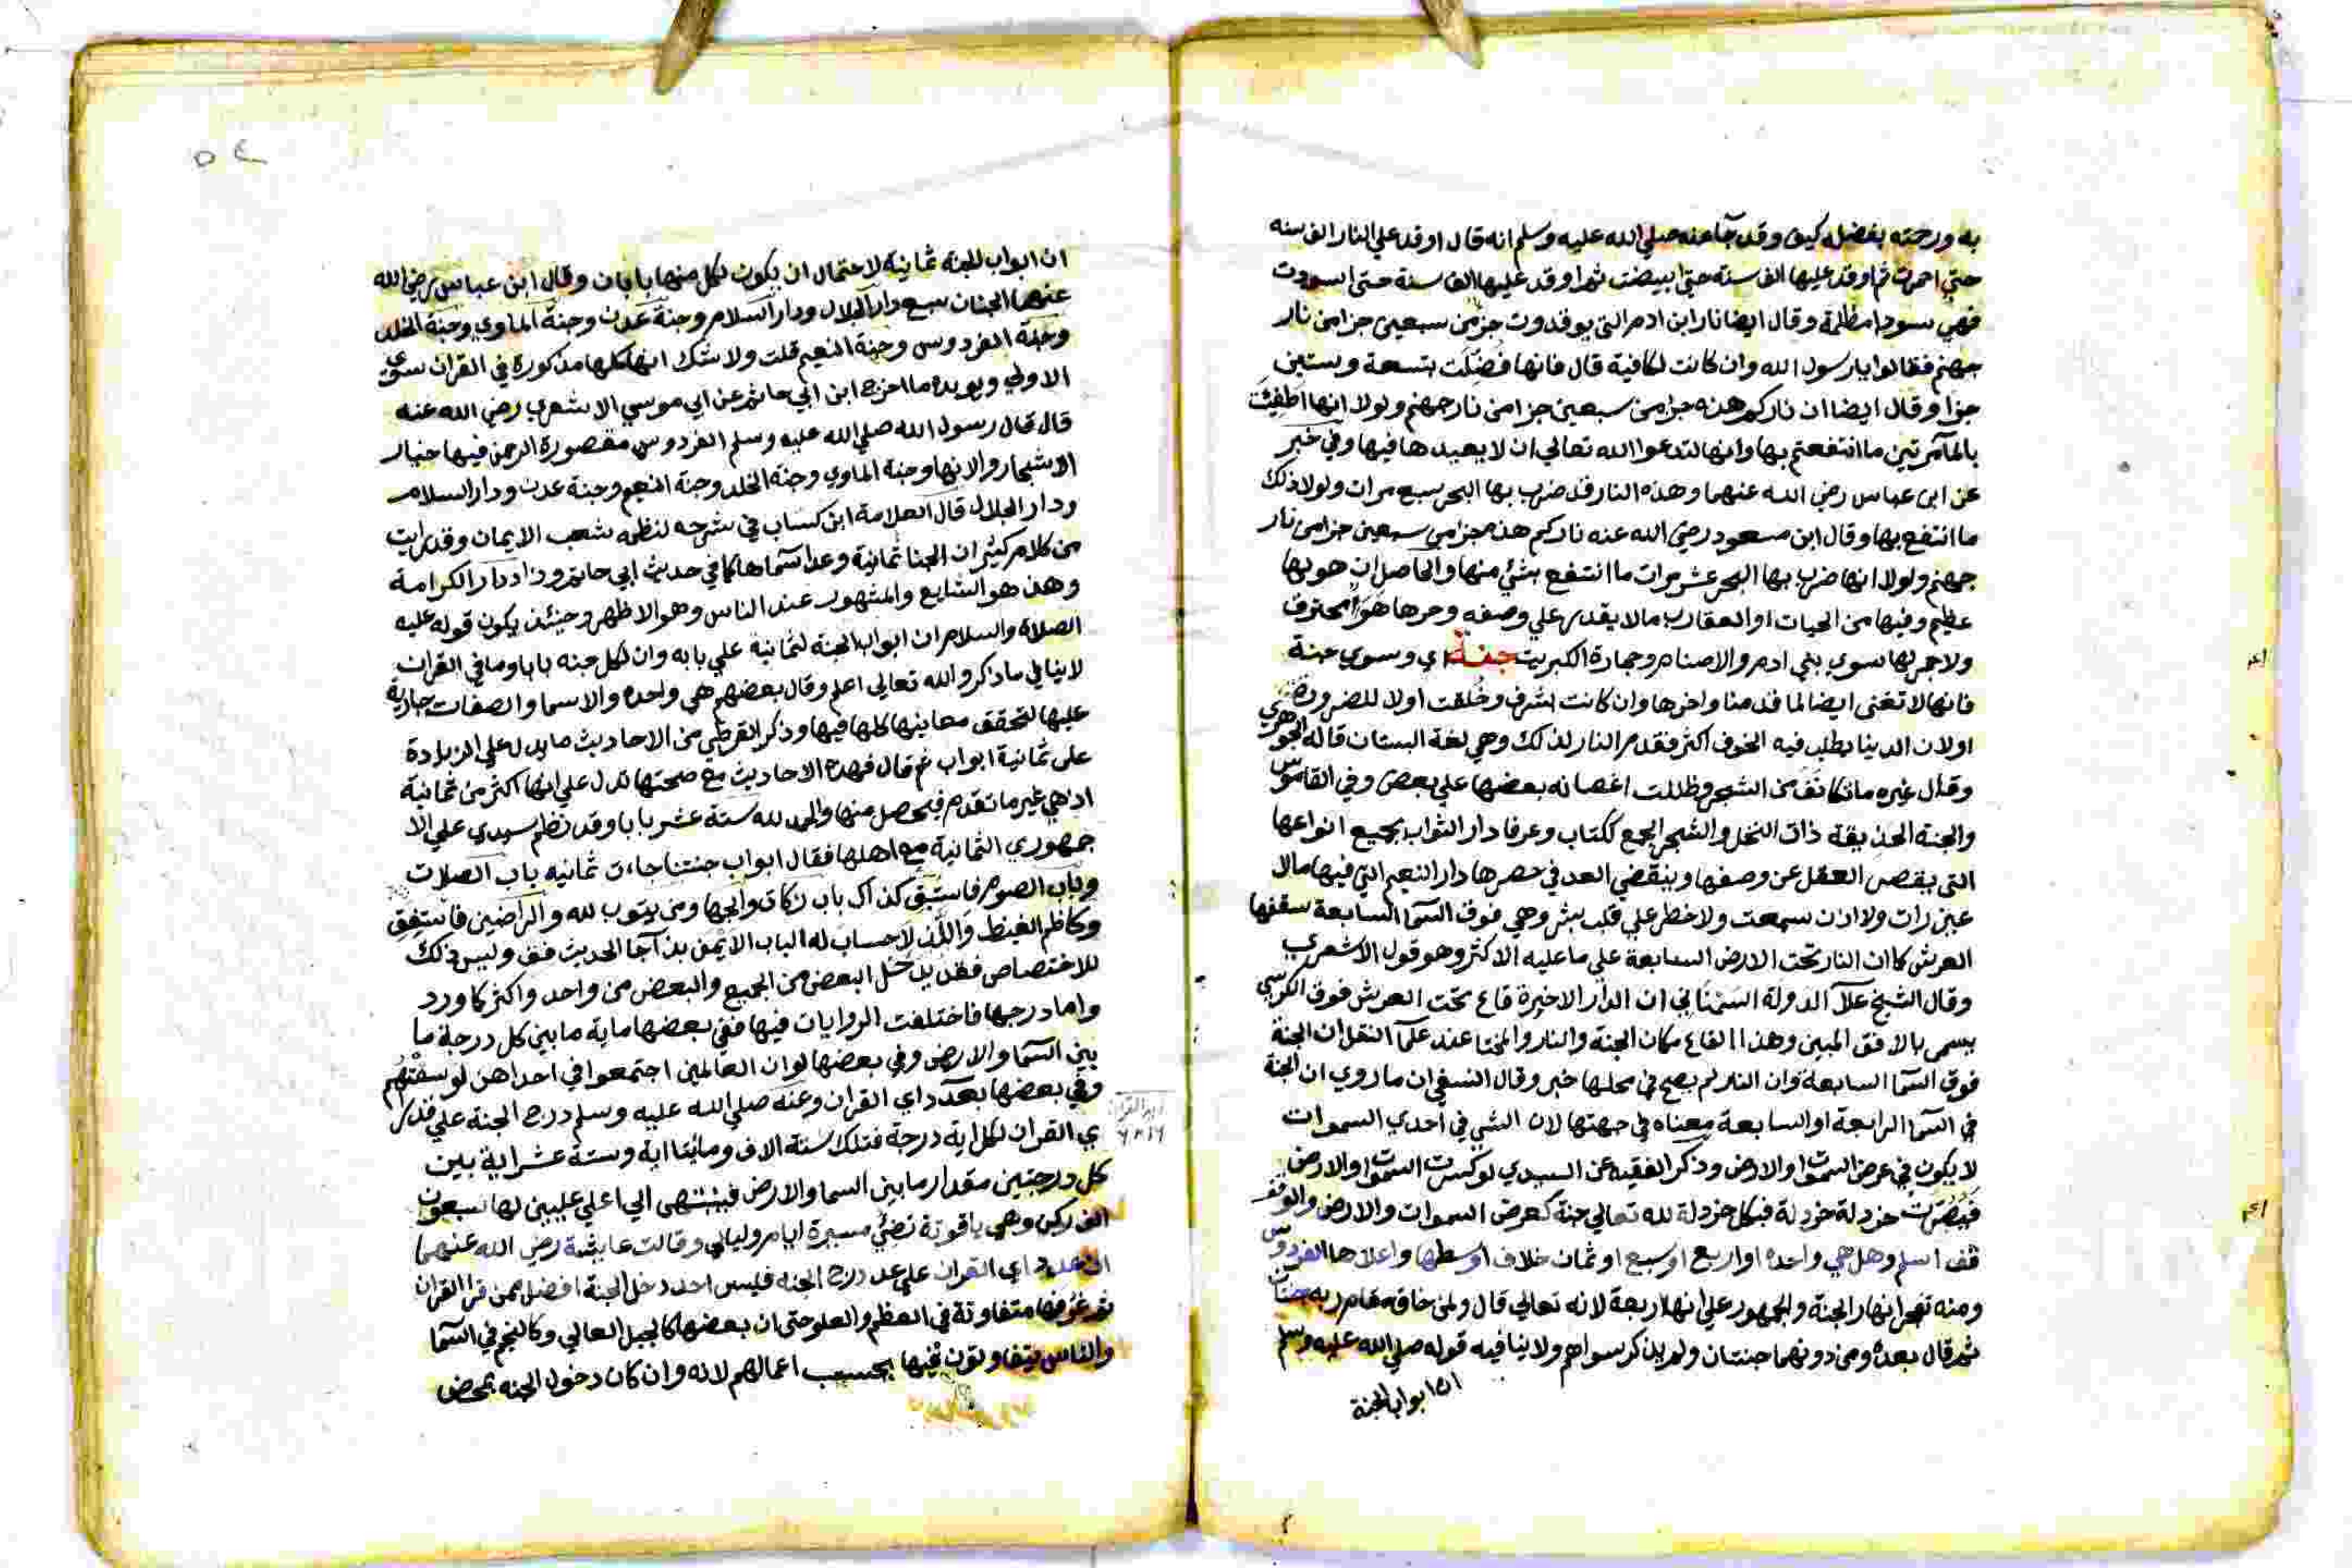 به ورحمته بفضله كيف وقد جآ عنه صلي الله عليه وسلم انه قال اوقد علي النار الف سنه
حتي احمرت ثم اوقد عليها الف سنة حتي ابيضت ثم اوقد عليها الف سنة حتي اسودت
فهي سودا مظلمة وقال ايضا نار ابن ادم التي يوقدون جزء من سبعين جزا من نار
جهنم فقالوا يا رسول الله وان كانت لكافية قال فانها فضلت بتسعة وستين
جزا وقال ايضا ان ناركم هذه جزا من سبعين جزا من نار جهنم ولولا انها اطفئت
بالمآ مرتين ما انتفعتم بها وانها لتدعوا الله تعالي ان لا يعيدها فيها وفي خبر
عن ابن عباس رضي الله عنهما وهذه النار قد ضرب بها البحر سبع مرات ولولا ذلك
ما انتفع بها وقال ابن مسعود رضي الله عنه ناركم هذه جزا من سبعين جزا من نار
جهنم ولولا انها ضرب بها البحر عشر مرات ما انتفع بشئ منها والحاصل ان هولها
عظيم وفيها من الحيات او العقارب ما لا يقدر علي وصفه وحرها هوآ محترق
ولا جمر لها سوي بني ادم والاصنام وحجارة الكبريت جنة اي وسوي جنة
فانها لا تفني ايضا لما قدمنا واخرها وان كانت اشرف وخلقت اولا للضرورة
اولان الدينا يطلب فيه الخوف اكثر فقدم النار لذلك وهي لغة البستان قاله الجوهري
وقال غيره ما تكاثف من الشجر وظللت اغصانه بعضها علي بعض وفي القاموس
والجنة الحديقة ذات النخل والشجر الجمع ككتاب وعرفا دار الثواب بجميع انواعها
التي يقصر العقل عن وصفها وينقضي العد في حصرها دار النعيم التي فيها مالا
عين رات ولا اذن سمعت ولا خطر علي قلب بشر وهي فوق السمآ السابعة سقفها
العرش كما ان النار تحت الارض السابعة علي ما عليه الاكثر وهو قول الاشعري
وقال الشيخ علآ الدولة السمناني ان الدار الاخيرة قاع تحت العرش فوق الكرسي
يسمي بالافق المبين وهذا القاع مكان الجنة والنار والمختا عند علمآ النقل ان الجنة
فوق السمآ السابعة وان النار لم يصح في محلها خبر وقال النسفي ان ما روي ان الجنة
في السمآ الرابعة او السابعة معناه في جهتها لان الشي في احدي السموات
لا يكون في عرض السموات والارض وذكر الفقيه عن السيدي لو كسرت السموات والارض
فصرت خردلة خردلة فبكل خردلة لله تعالي جنة كعرض السموات والارض والوقف
فقف اسلم وهل هي واحدة او اربع او سبع او ثمان خلاف اوسطها واعلاها الفردوس
ومنه تفجر انهار الجنة والجمهور علي انها اربعة لانه تعالي قال ولمن خاف مقام ربه جنتان
ثم قال بعده ومن دونهما جنتان ولم يذكر سواهم ولا ينافيه قوله صلي الله عليه وسلم
ان ابواب الجنة
ان ابواب الجنة ثمانية لاحتمال ان يكون لكل منها بابان وقال ابن عباس رضي الله
عنهما الجنان سبع دار الجلال ودار السلام وجنة عدن وجنة الماوي وجنة الخلد
وجنة الفردوس وجنة النعيم قلت ولا شك انها كلها مذكورة في القران سوي
الاولي ويويده ما اخرج ابن ابي حاتم عن ابي موسي الاشعري رضي الله عنه
قال قال رسول الله صلي الله عليه وسلم الفردوس مقصورة الرحمن فيها خيار
الاشجار والانها وجنة الماوي وجنة الخلد وجنة النعيم وجنة عدن ودار السلام
ودار الجلال قال العلامة ابن كساب في شرحه لنظمه شعب الايمان وقد رايت
من كلام كثير ان الجنا ثمانية وعدا سمآها كما في حديث ابي حاتم وزاد دار الكرامة
وهذا هو الشايع والمشهور عند الناس وهو الاظهر وحينئذ يكون قوله عليه
الصلاة والسلام ان ابواب الجنة لثمانية علي بابه وان لكل جنه بابا وما في القران
لا ينافي ما ذكر والله تعالي اعلم وقال بعضهم هي واحده والاسما والصفات جارية
عليها لتحقق معاينها كلها فيها وذكر القرطبي من الاحاديث ما يدل علي الزيادة
علي ثمانية ابواب ثم قال فهذه الاحاديث مع صحتها تدل علي انها اكثر من ثمانية
اذ هي غير ما تقدم فيحصل منها والحمد لله ستة عشر بابا وقد نظم سيدي علي الا
جمهوري الثمانية مع اهلها فقال ابواب جنتنا جاءت ثمانيه باب الصلات
وباب الصوم فاستبق كذاك باب زكاة والجها ومن يتوب لله والراضين فاستفق
وكاظم الغيظ والذ لا حساب له الباب الايمن بذا جا الحديث فقف وليس ذلك
للاختصاص فقد يدخل البعض من الجميع والبعض من واحد واكثر كما ورد
واما درجها فاختلفت الروايات فيها ففي بعضها ماية ما بين كل درجة ما
بين السمآ والارض وفي بعضها لو ان العالمين اجتمعوا في احداهن لوسعتهم
وفي بعضها بعدد اي القران وعنه صلي الله عليه وسلم درج الجنة علي قدر
ي القران لكل اية درجة فتلك ستة الاف ومايتا اية وستة عشر اية بين
كل درجتين مقدار ما بين السما والارض فينتهي الي اعلي عليين لها سبعون
الف ركن وهي ياقوتة تضيئ مسيرة ايام وليالي وقالت عايشة رضي الله عنهما
ان عدد اي القران علي عدد درج الجنه فليس احد دخل الجنة افضل ممن قرا القران
ثم غرفها متفاوتة في العظم والعلو حتي ان بعضها كالجبل العالي وكالنجم في السمآ
والناس يتفاوتون فيها بحسب اعمالهم لانه وان كان دخول الجنه بمحض